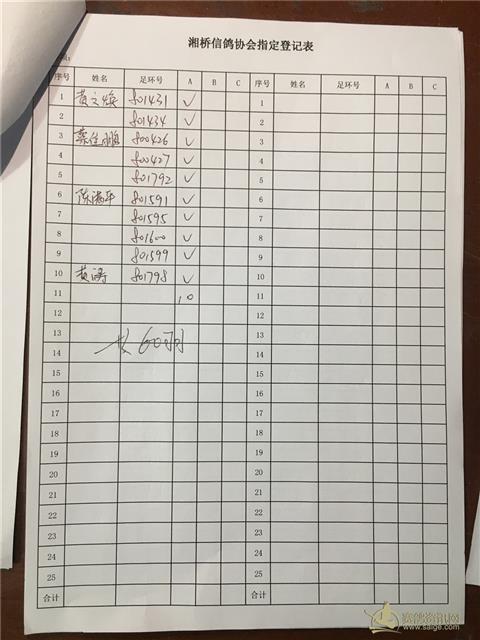 湘桥信鸽协会指定登记表
序号 姓名 足环号 A B C 序号 姓名 足环号 A B C
1 黄文焕 801431 ✓ 1
2 801434 ✓ 2
3 蔡佳顺 800426 ✓ 3
4 800427 ✓ 4
5 801792 ✓ 5
6 陈满平 801591 ✓ 6
7 801595 ✓ 7
8 801600 ✓ 8
9 801599 ✓ 9
10 黄涛 801798 ✓ 10
11 10 11
12 12
13 13
共60羽
14 14
15 15
16 16
17 17
18 18
19 19
20 20
21 21
22 22
23 23
24 24
25 25
合计 合计
赛鸽资讯网
www.saige.com